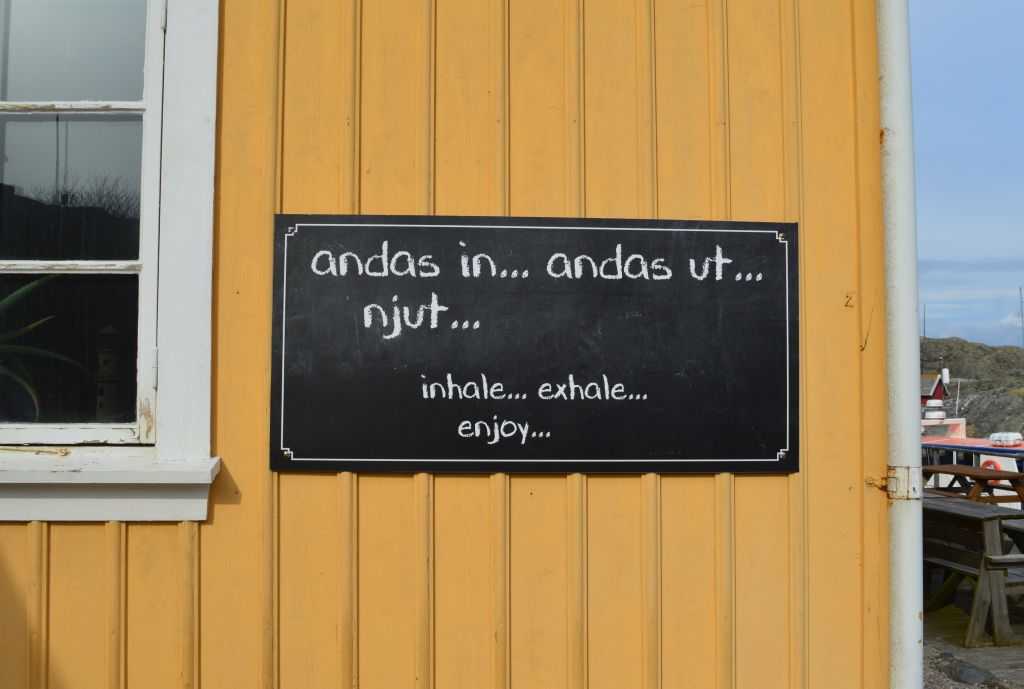 andas in... andas ut...
njut...
inhale... exhale...
enjoy...